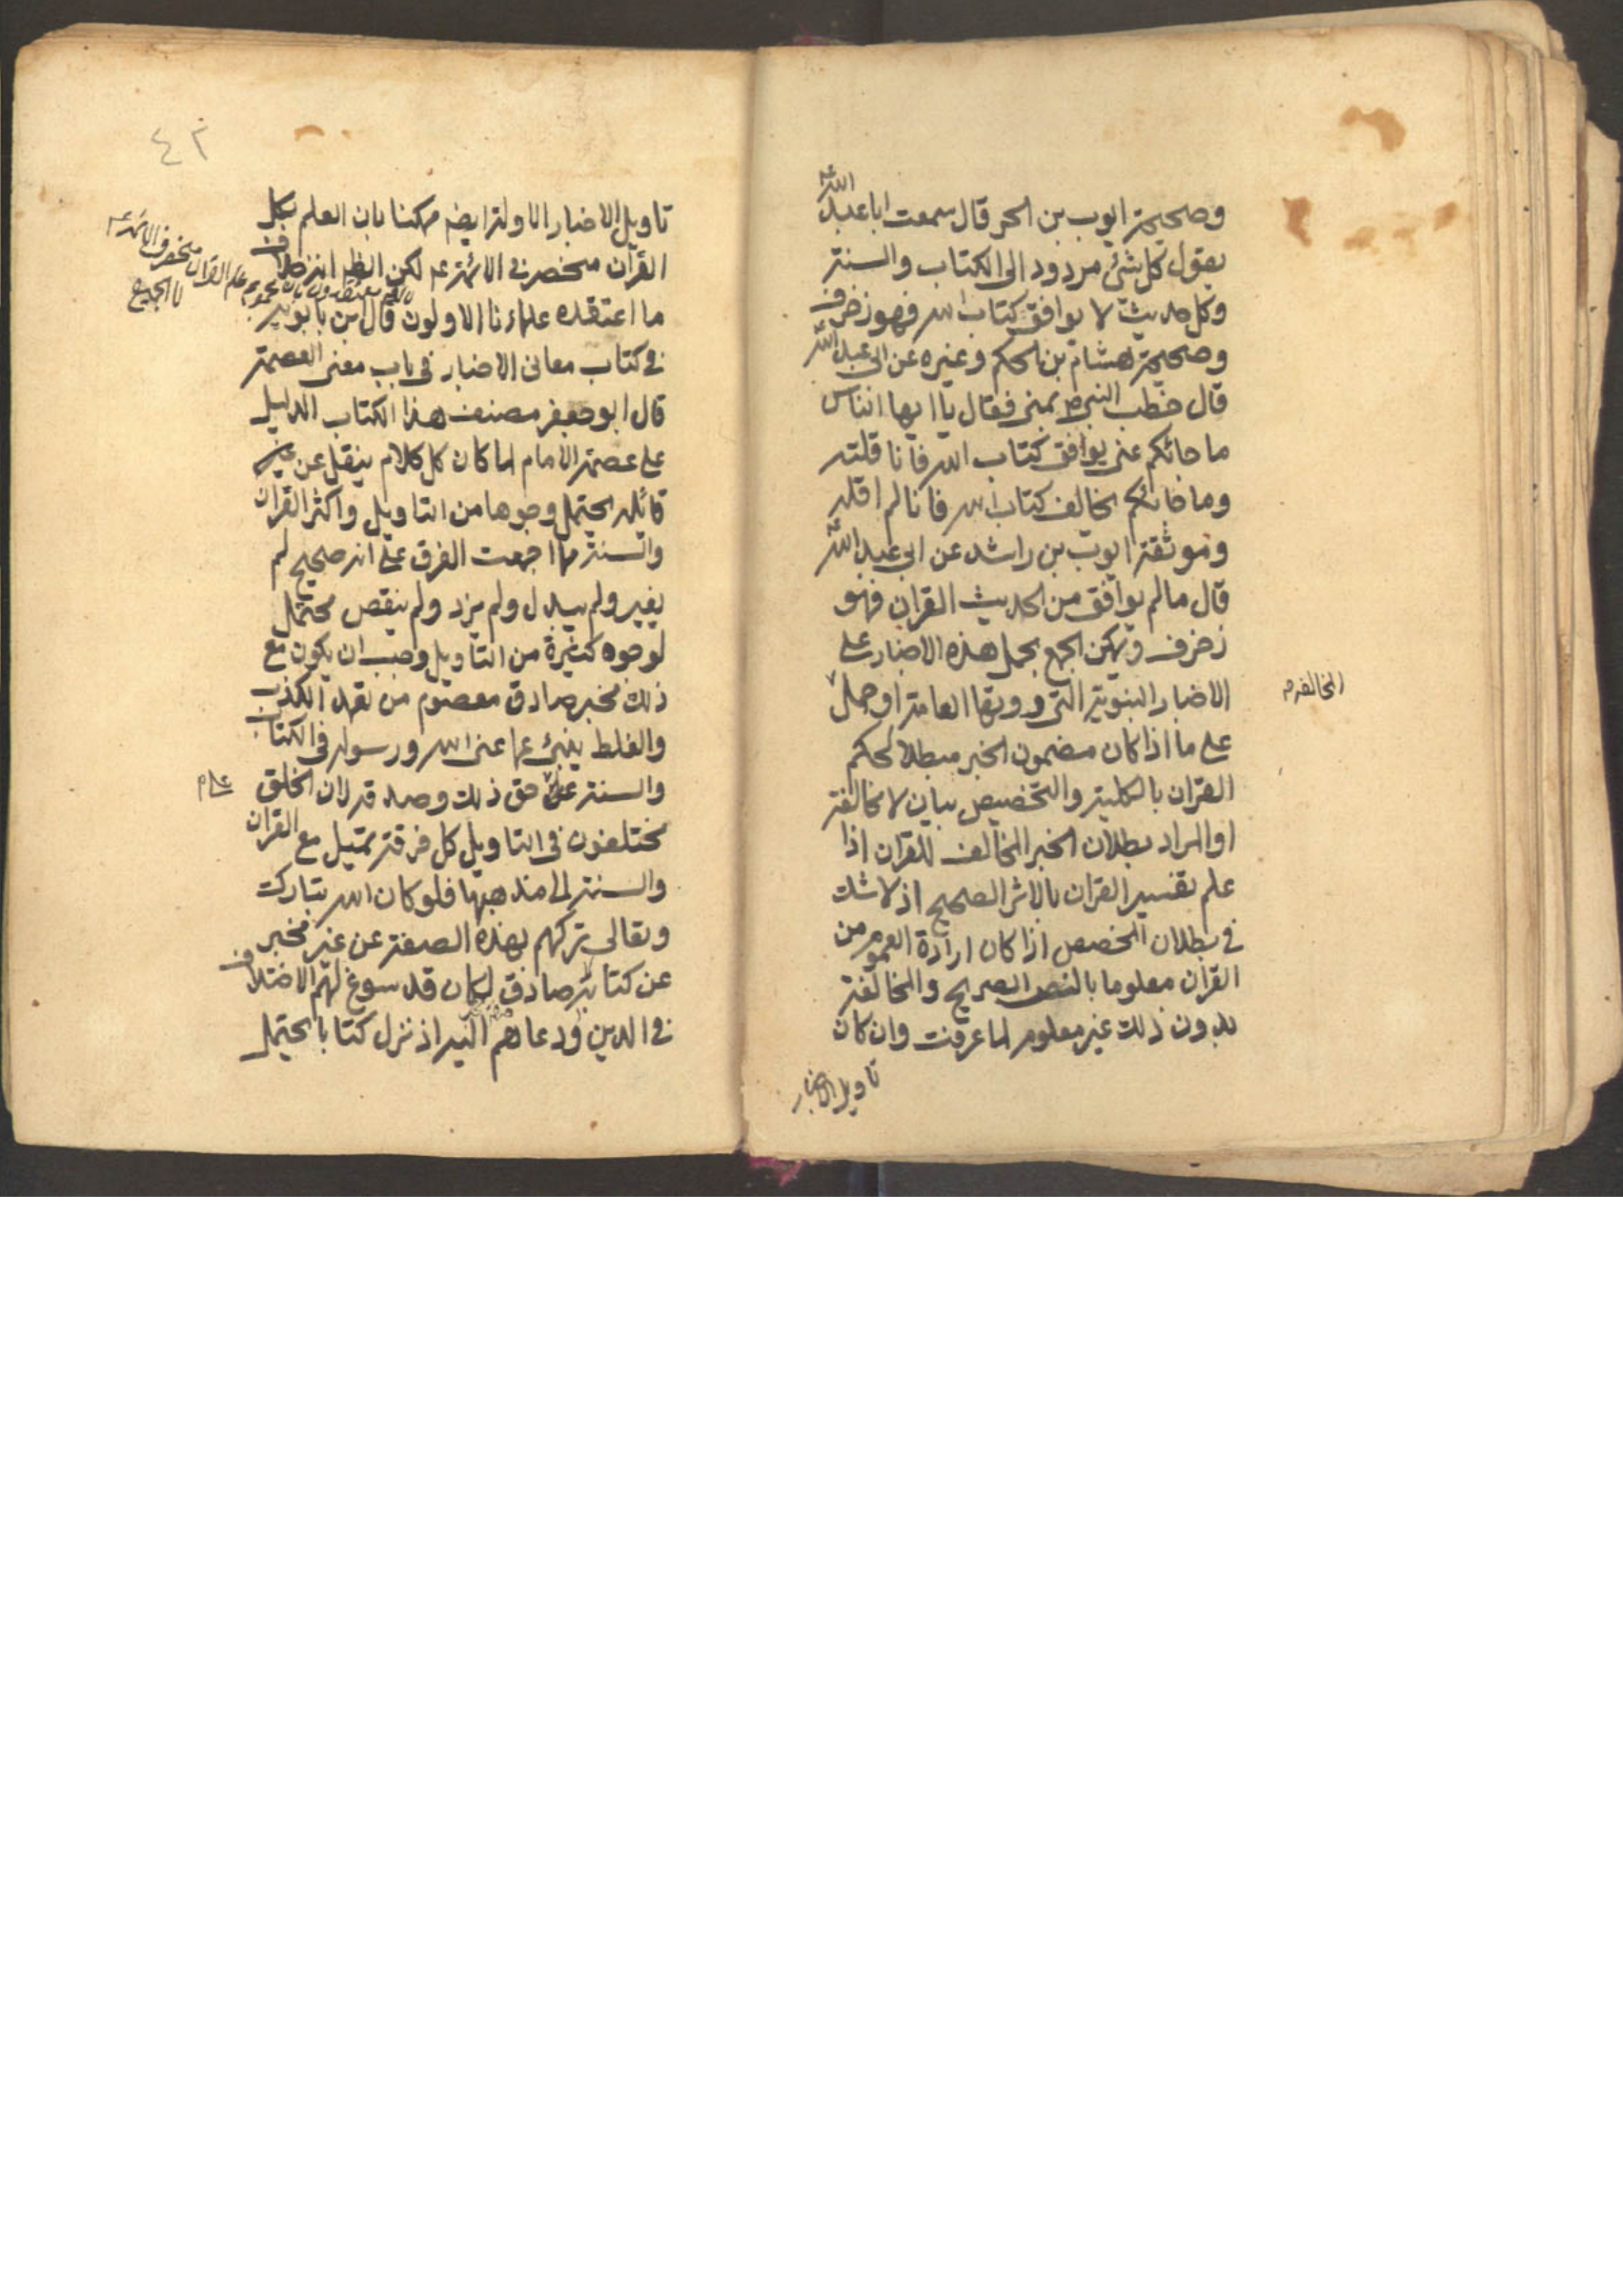 وصحيحة ايوب بن الحر قال سمعت ابا عبد الله ع
يقول كل شئ مردود الى الكتاب والسنة
وكل حديث لا يوافق كتاب الله فهو زخرف
وصحيحة هشام بن الحكم وغيره عن ابى عبد الله ع
قال خطب النبي ص بمنى فقال يا ايها الناس
ما جائكم عنى يوافق كتاب الله فانا قلته
وما جائكم يخالف كتاب الله فانا لم اقله
وموثقة ايوب بن راشد عن ابي عبد الله ع
قال ما لم يوافق من الحديث القران فهو
زخرف ويمكن الجمع بحمل هذه الاخبار على
الاخبار النبوية التى روتها العامة او حمل
المخالفة م
على ما اذا كان مضمون الخبر مبطلا لحكم
القران بالكلية والتخصيص بيان لا مخالفة
او المراد بطلان الخبر المخالف للقران اذا
علم تفسير القران بالاثر الصحيح اذ لا شك
فى بطلان المخصص اذا كان ارادة العموم من
القران معلوما بالنص الصريح والمخالفة
بدون ذلك غير معلوم لما عرفت وان كان
تاويل الاخبار
٤٢
تاويل الاخبار الاولة ايضم ممكنا بان العلم بكل
القران منحصر فى الائمة ع لكن الظ انه خلاف
ما اعتقده علماءنا الاولون قال ابن بابويه
فانهم يعتقدون بان مجموع علم القران منحصر فى الائمة ع
لا الجميع
فى كتاب معانى الاخبار فى باب معنى العصمة
قال ابو جعفر مصنف هذا الكتاب الدليل
على عصمة الامام لما كان كل كلام ينقل عن
قائله يحتمل وجوها من التاويل واكثر القران
والسنة مما اجمعت الفرق على انه صحيح لم
يغير ولم يبدل ولم يزد ولم ينقص محتمل
لوجوه كثيرة من التاويل وجب ان يكون مع
ذلك مخبر صادق معصوم من تعمد الكذب
والغلط ينبئ عما عنى الله ورسوله فى الكتاب
والسنة على حق ذلك وصدقه لان الخلق
مختلفون فى التاويل كل فرقة تميل مع القران
والسنة الى مذهبها فلو كان الله تبارك
وتعالى تركهم بهذه الصفة عن غير مخبر
عن كتابه صادق لكان قد سوغ لهم الاختلاف
فى الدين ودعاهم اليه اذ نزل كتابا يحتمل